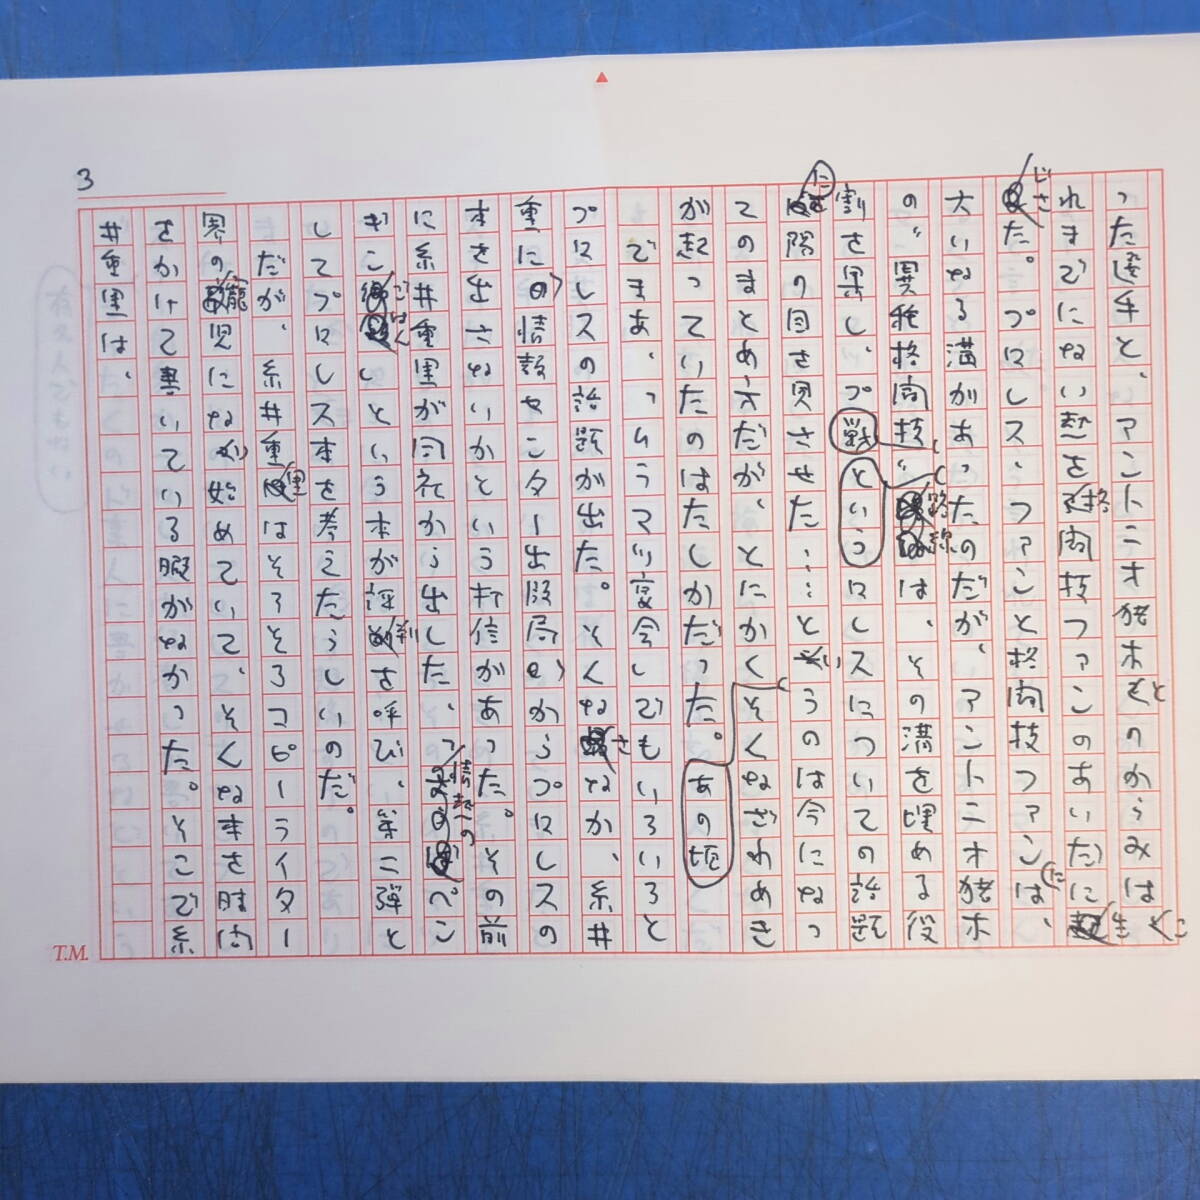 3
った選手と、アントニオ猪木とのからみはこ
れまでにない熱を格闘技ファンのあいだに生
じさた。プロレス・ファンと格闘技ファンは、
大いなる溝があったのだが、アントニオ猪木
の〝異種格闘技戦〟という路線は、その溝を埋める役
割を果し、プロレスについての話題
に陽の目さ見させた……というのは今になっ
てのまとめ方だが、とにかくそんなざわめき
が起っていたのはたしかだった。あの頃
でまあ、〝ムラマツ寝今〟でもいろいろと
プロレスの話題が出た。そんなさなか、糸井
重に情報センター出版局からプロレスの
本を出さないかという打信があった。その前
に糸井重里が同社から出した、〝情熱のペン
ギンごはん〟という本が評判を呼び、第二弾と
してプロレス本を考えたらしいのだ。
だが、糸井重里はそろそろコピーライター
界の寵児になり始めていて、そんな本を時間
をかけて書いている暇がなかった。そこで糸
井重里は、
T.M.